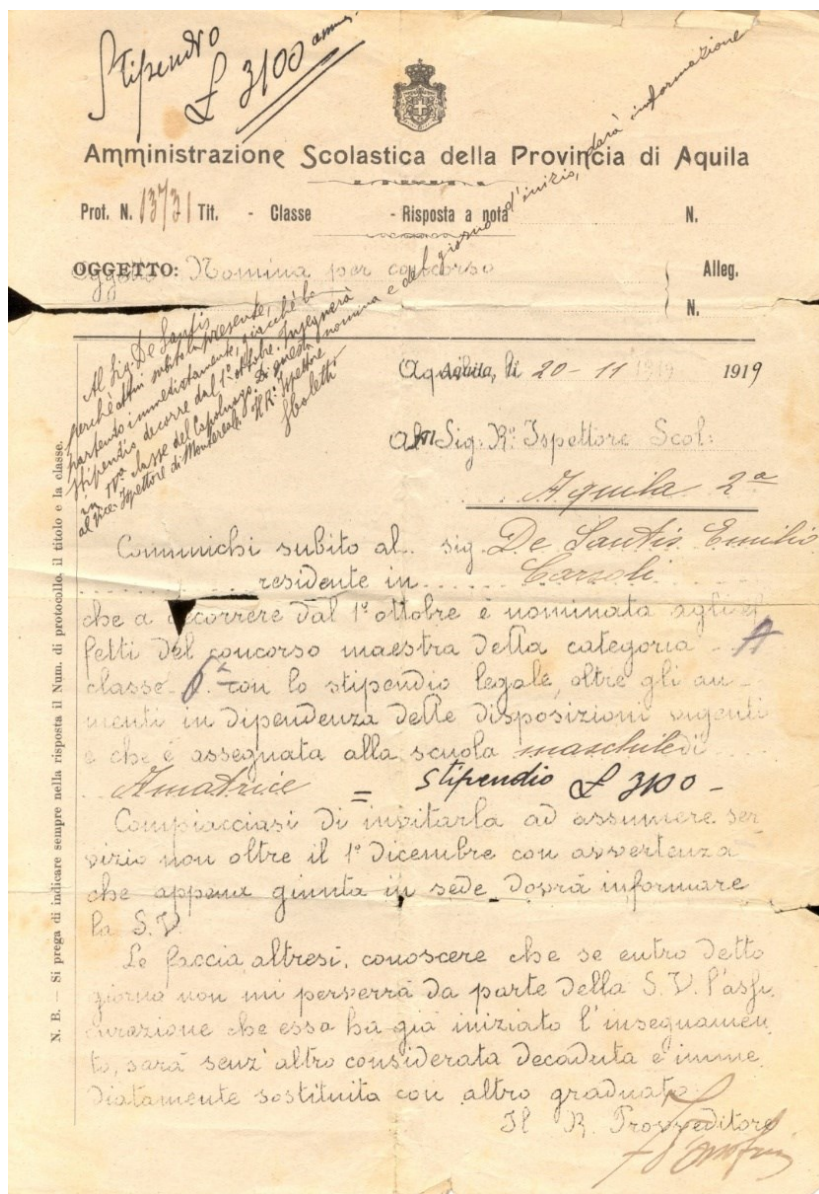 Stipendio
£ 3100 annue.
Amministrazione Scolastica della Provincia di Aquila
Prot. N. 13731 Tit. - Classe - Risposta a nota N.
OGGETTO: Nomina per concorso Alleg.
N.
Al Sig. De Santis
perchè attui subito la presente,
partendo immediatamente, giacchè lo
stipendio decorre dal 1º ottobre. Insegnerà
in IVª classe del Capoluogo. Di questa nomina e del giorno d'inizio, darà informazione
al vice-Ispettore di Montereale.
Il Rº Ispettore
Aquila, li 20-11 1919
Al Sig. Rº Ispettore Scol:
Aquila 2ª
Comunichi subito al sig. De Santis Emilio
residente in Carsoli
che a decorrere dal 1º ottobre è nominata agli ef
fetti del concorso maestra della categoria - A
classe 6ª con lo stipendio legale, oltre gli au-
menti in dipendenza delle disposizioni vigenti
e che è assegnata alla scuola maschile di
Amatrice = stipendio £ 3100 -
Compiacciasi di invitarla ad assumere ser
vizio non oltre il 1º Dicembre con avvertenza
che appena giunta in sede dovrà informare
la S.V.
Le faccia altresì, conoscere che se entro detto
giorno non mi perverrà da parte della S.V. l'assi
curazione che essa ha già iniziato l'insegnamen
to, sarà senz'altro considerata decaduta e imme
diatamente sostituita con altro graduato.
Il R. Provveditore
N. B. — Si prega di indicare sempre nella risposta il Num. di protocollo, il titolo e la classe.